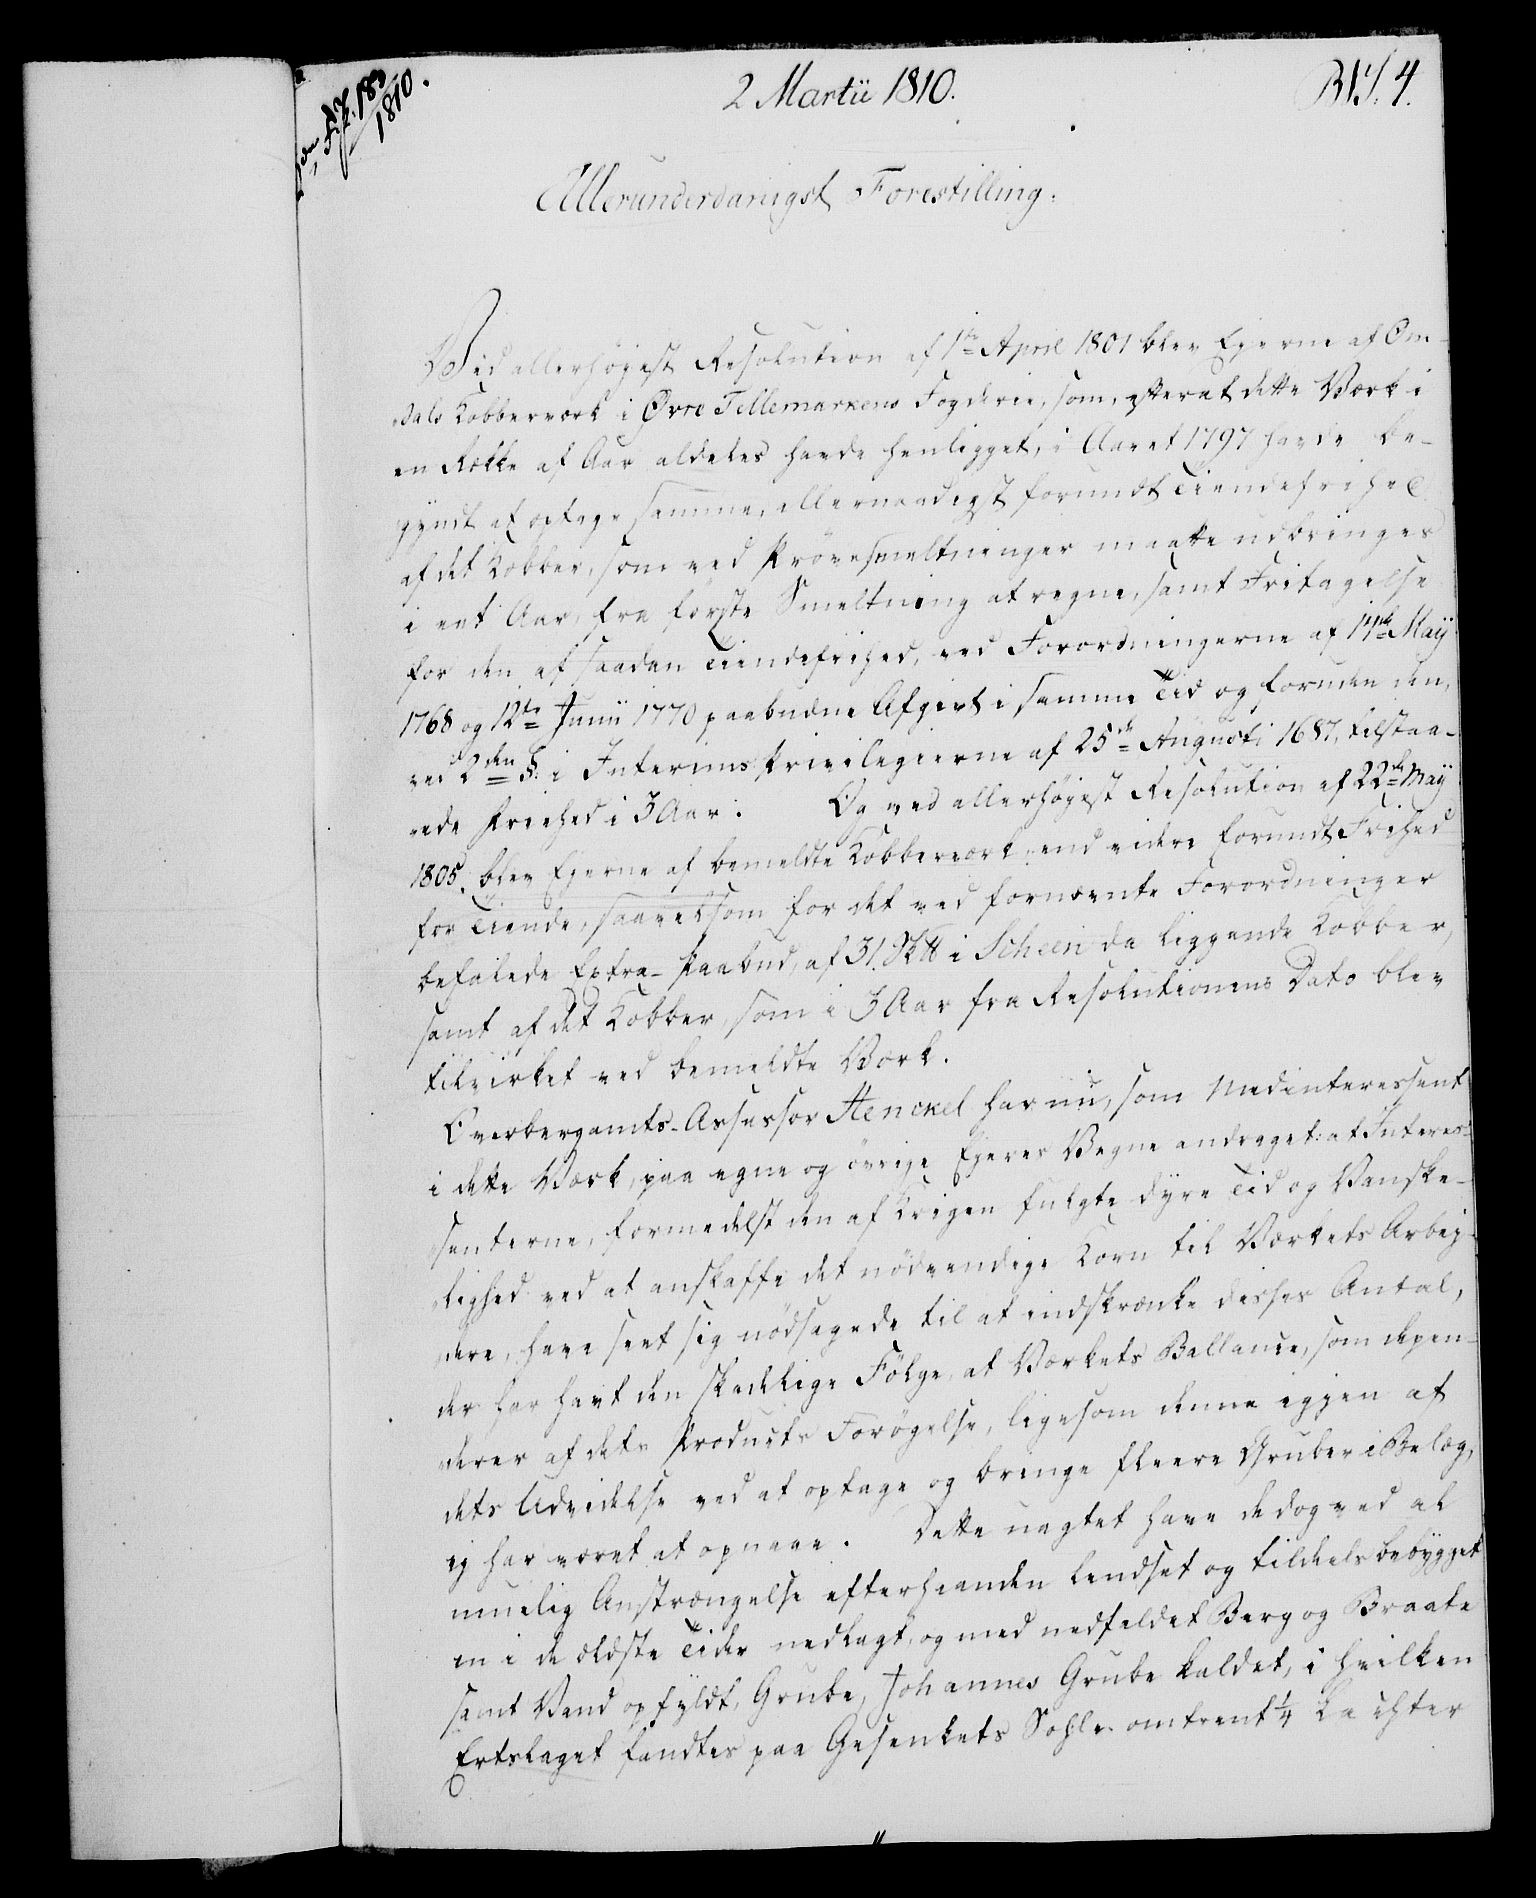 2 Martii 1810.
1810.
Allerunderdanigst Forestilling.
Ved allerhøjest Resolution af 1te April 1801 blev Ejerne af Om-
dals Kobberværk i Øvre Tellemarkens Fogderie, som, efterat dette Værk i
en Række af Aar aldeles havde henligget, i Aaret 1797 havde be-
gyndt at optage samme, allernaadigst forundt Tiendefrihed
af det Kobber, som ved Prøvesmeltninger maatte udbringes
i eet Aar, fra første Smeltning at regne, samt Fritagelse
for den af saadan Tiendefrihed, ved Forordningerne af 14de Maÿ
1768 og 12te Junii 1770 paabudne Afgivt i samme Tid og foruden den,
ved 2den §. i Interims Privilegierne af 25de Augusti 1687, tilstaa-
ede Friehed i 3 Aar. Og ved allerhøjest Resolution af 22de Maÿ
1805. blev Ejerne af bemeldte Kobberværk end videre forundt Frihed
for Tiende, saavelsom for det ved fornævnte Forordninger
befalede Extra-Paabud, af 31. Sk℔ i Scheen da liggende Kobber,
samt af det Kobber, som i 3 Aar fra Resolutionens Dato blev
tilvirket ved bemeldte Værk.
Overbergamts-Assessor Henckel har nu, som Medinteressent
i dette Værk, paa egne og øvrige Ejeres Vegne andraget: at Interes-
senterne, formedelst den af Krigen fulgte dyre Tid og Vanske-
lighed ved at anskaffe det nødvendige Korn til Værkets Arbej-
dere, have seet sig nødsagede til at indskrænke disses Antal,
der har havt den skadelige Følge, at Værkets Ballance, som depen-
derer af dets Products Forøgelse, ligesom denne igjen af
dets Udvidelse ved at optage og bringe fleere Gruber i Belæg,
ej har været at opnaae. Dette uagtet have de dog ved al
muelig Anstrængelse efterhaanden lendset og tildeels bebygget
en i de ældste Tider nedlagt, og med nedfaldet Berg og Braate
samt Vand opfyldt, Grube, Johannes Grube kaldet, i hvilken
Ertslaget fandtes paa Gesenkets Sohle omtrent ¼ Lachter